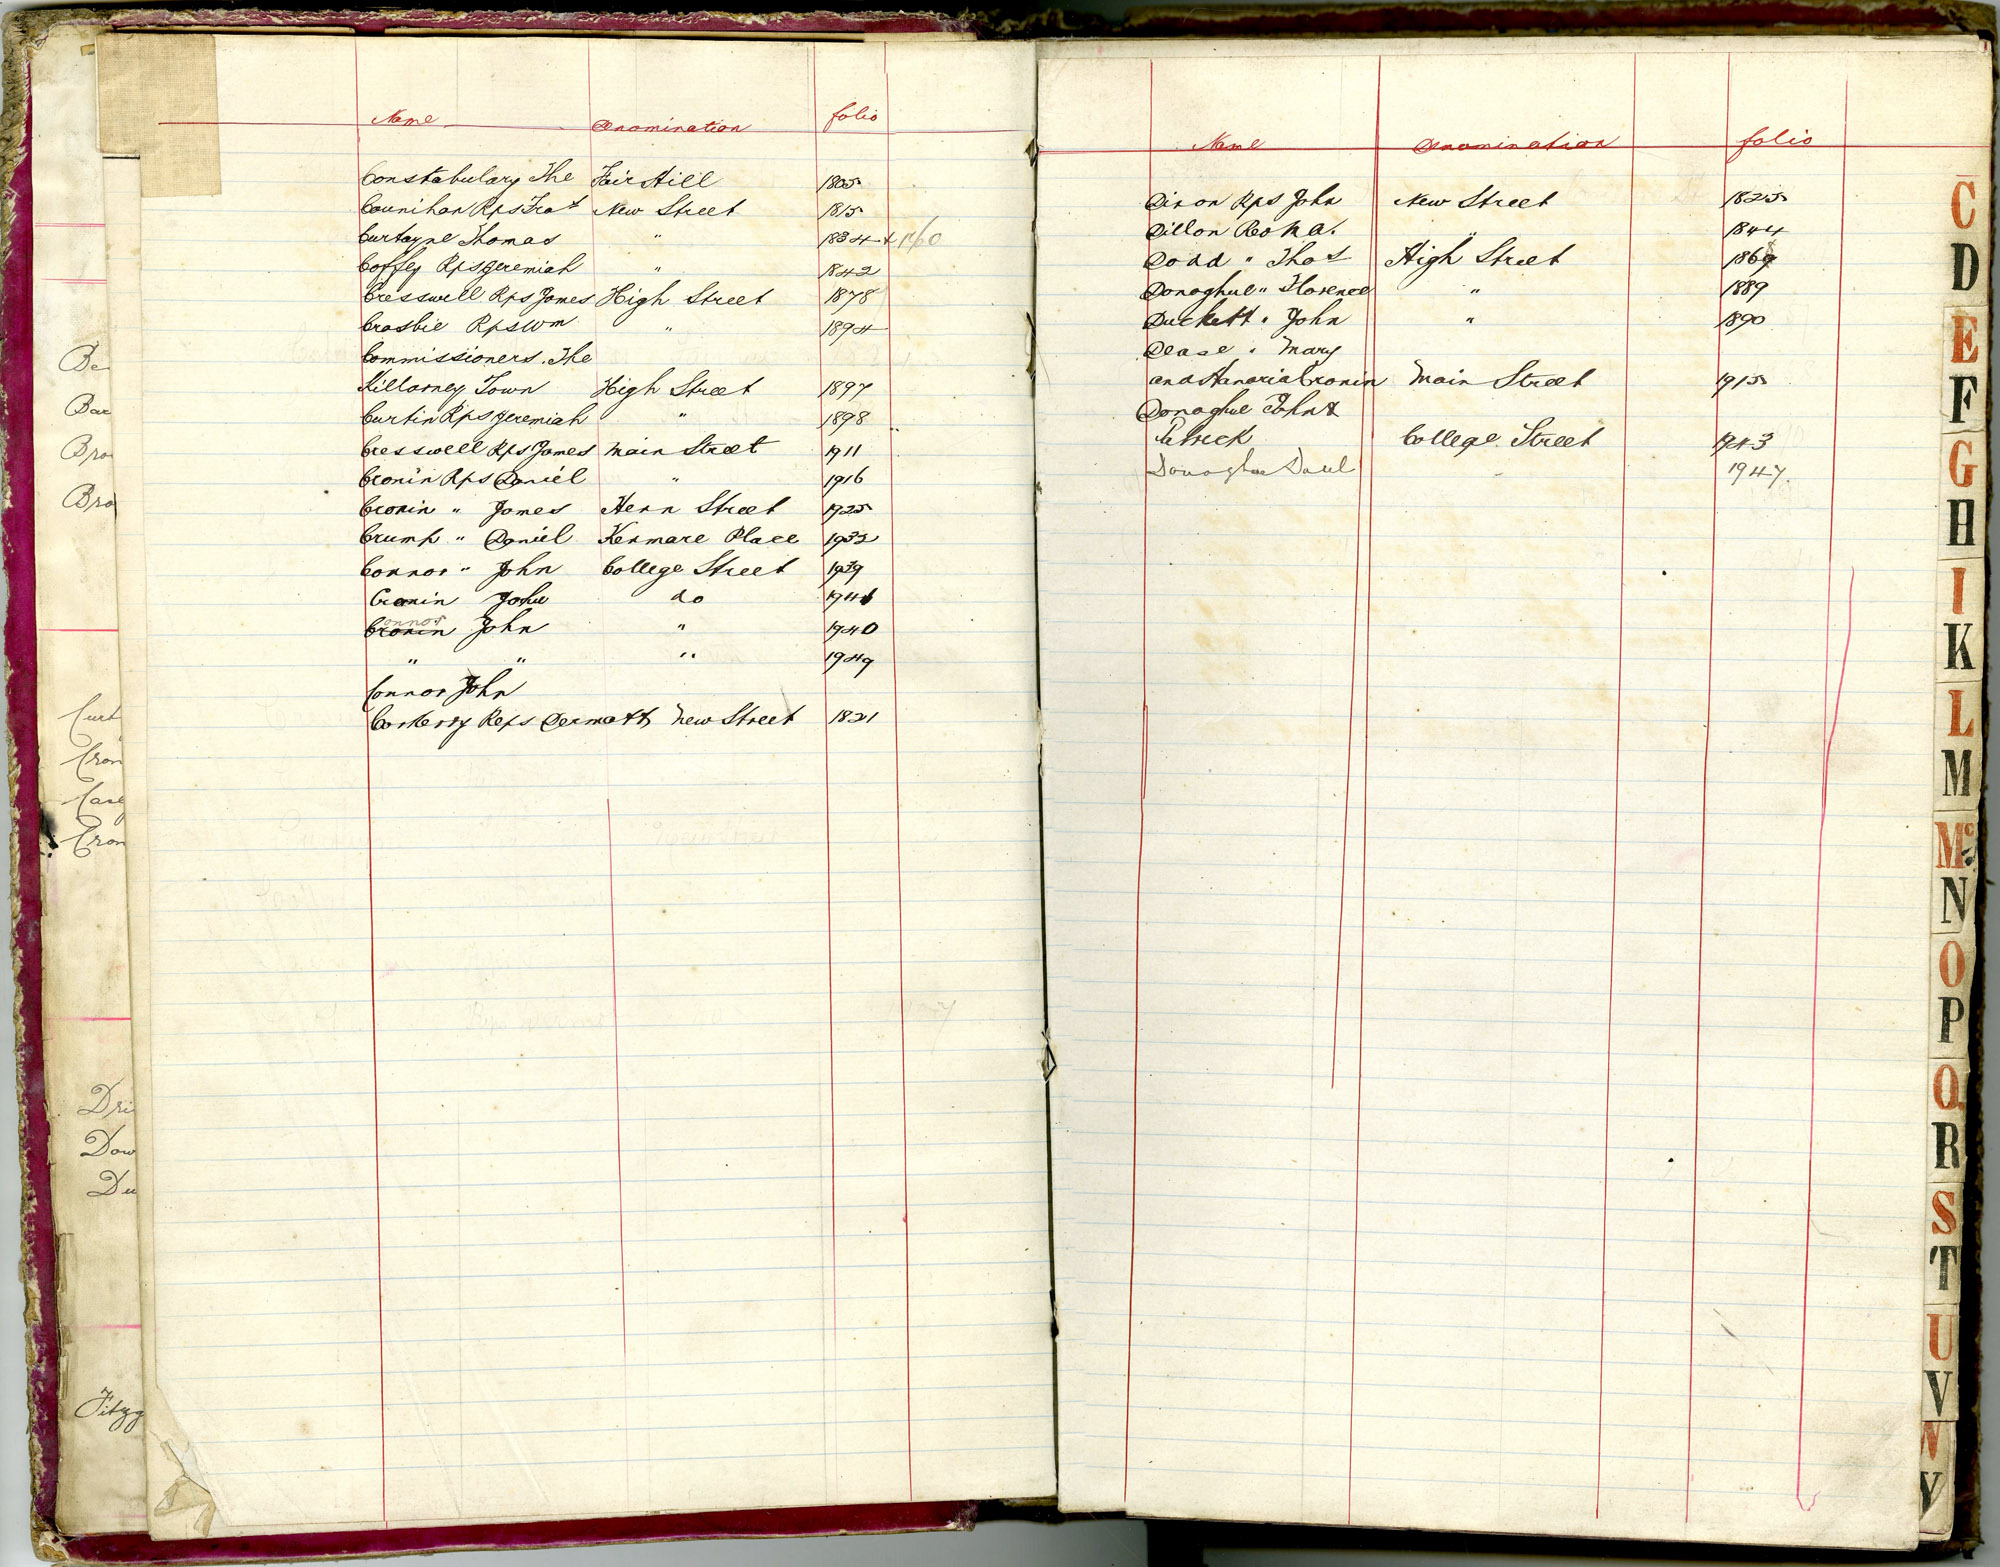 Name Denomination folio
Constabulary The Fair Hill 1805
Counihan Rps Fras New Street 1815
Curtayne Thomas " 1834 +
Coffey Rps Jeremiah " 1842
Cresswell Rps James High Street 1878
Crosbie Rps Wm " 1894
Commissioners. The
Killarney Town High Street 1897
Curtin Rps Jeremiah " 1898
Cresswell Rps James Main Street 1911
Cronin Rps Daniel " 1916
Cronin " James Henn Street 1925
Crump " Daniel Kenmare Place 1932
Connor " John College Street 1939
Cronin John do 1946
Connor
Cronin John " 1940
" " " 1949
Connor John
Corkery Reps Dermott New Street 1821
Be
Bar
Bro
Bro
Curt
Cron
Case
Cron
Dri
Dow
Du
Fitzg
Name Denomination folio
Dixon Rps John New Street 1825
Dillon " 1844
Dodd " Thos High Street 1869
Donoghue " Florence " 1889
Duckett " John " 1890
Dease " Mary
and Hanoria Cronin Main Street 1915
Donoghue John &
Patrick College Street 1943
Donoghue Danl " 1947.
C
D
E
F
G
H
I
K
L
M
Mc
N
O
P
Q
R
S
T
U
V
W
Y